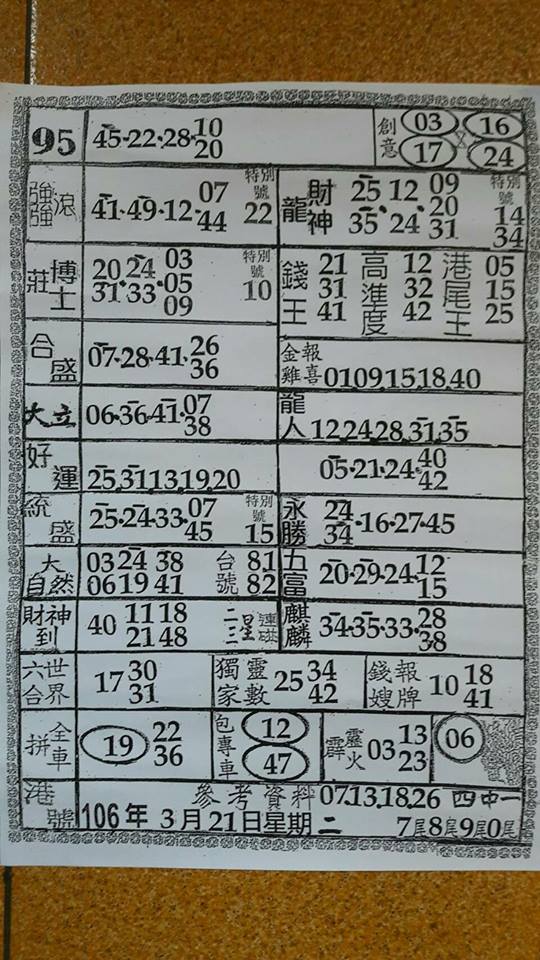 95 45·22·28·10 20 創意 03 16 17 24
強強滾 41·49·12·07 44 特別號 22 財神龍 25·12·09 20 35·24·31 特別號 14 34
博士莊 20·24·03 31·33·05 09 特別號 10 錢王 21 31 41 高準度 12 32 42 港尾王 05 15 25
合盛 07·28·41·26 36 金雞報喜 01 09,15,18,40
大立 06·36·41·07 38 龍人 12,24,28,31,35
好運 25,31,13,19,20 05·21·24·40 42
統盛 25·24·33·07 45 特別號 15 永勝 24 34·16·27·45
大自然 03 24 38 06 19 41 台號 81 82 五富 20·29·24·12 15
財神到 40 11 18 21 48 二三星連碰 麒麟 34·35·33·28 38
六合世界 17 30 31 獨家靈數 25 34 42 錢嫂報牌 10 18 41
全車拼 19 22 36 包專車 12 47 霹靈火 03 13 23 06
港號 參考資料 07.13.18.26 四中一
106年 3月21日星期二 7尾8尾9尾0尾